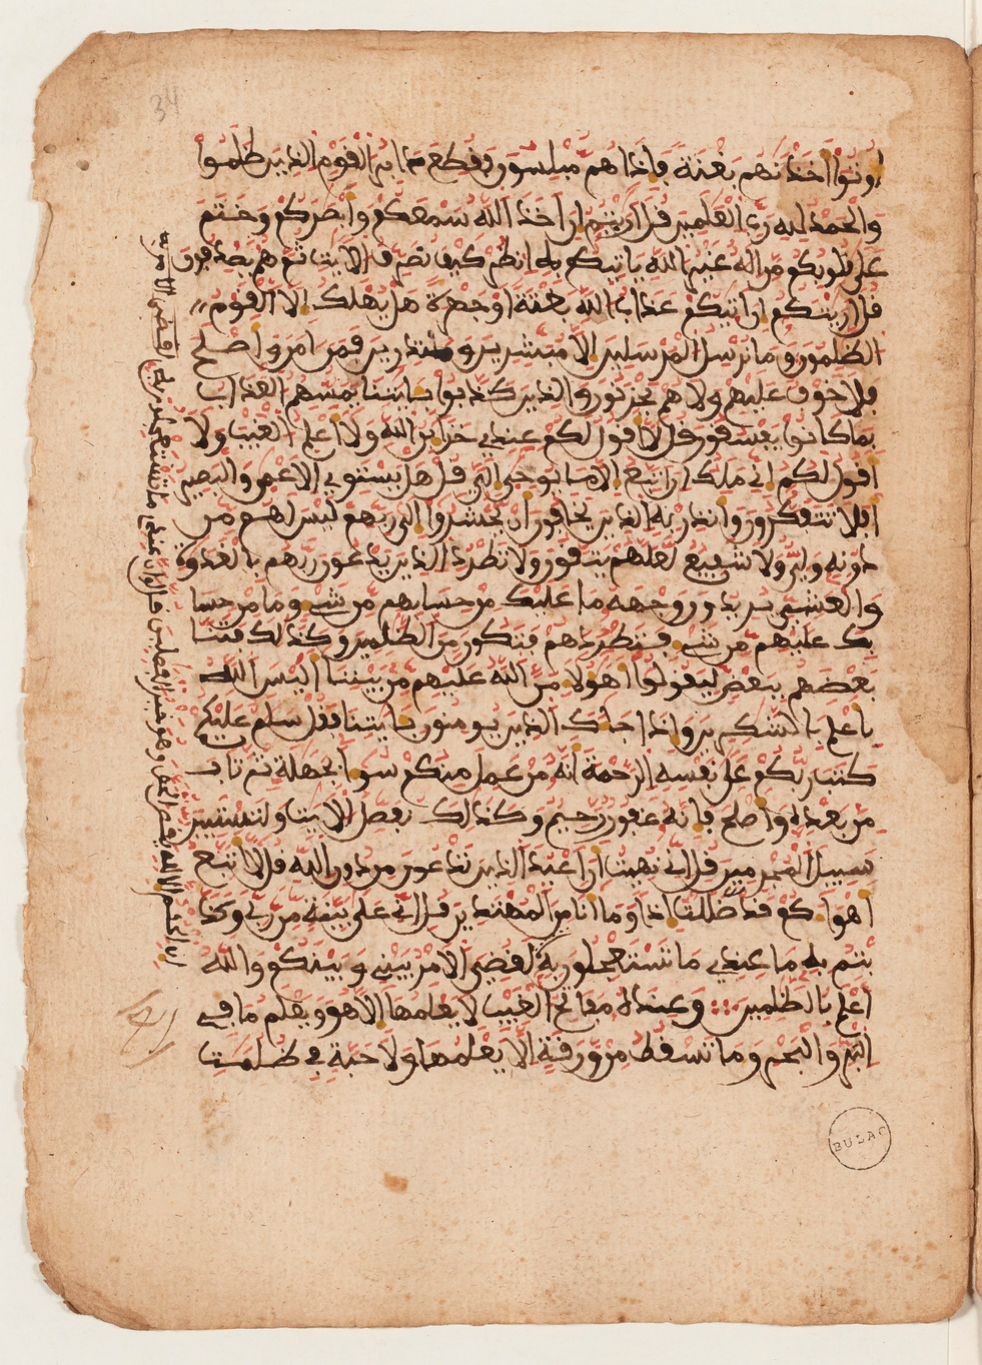 34
اوتوا اخذنهم بغتة فاذا هم مبلسون فقطع دابر القوم الذين ظلموا
والحمد لله رب العلمين قل ارٮتم ان اخذ الله سمعكم وابصركم وختم
على قلوبكم من اله غير الله ياتيكم به انظر كيف نصرف الايت ثم هم يصدفون
قل اريتكم ان اتيكم عذاب الله بغتة او جهرة هل يهلك الا القوم
الظلمون وما نرسل المرسلين الا مبشرين ومنذرين فمن امن واصلح
فلا خوف عليهم ولا هم يحزنون والذين كذبوا بايتنا يمسهم العذاب
بما كانوا يفسقون قل لا اقول لكم عندي خزاين الله ولا اعلم الغيب ولا
اقول لكم اني ملك ان اتبع الا ما يوحى الي قل هل يستوي الاعمى والبصير
افلا تتفكرون وانذر به الذين يخافون ان يحشروا الى ربهم ليس لهم من
دونه ولي ولا شفيع لعلهم يتقون ولا تطرد الذين يدعون ربهم بالغدوة
والعشي يريدون وجهه ما عليك من حسابهم من شي وما من حسا
بك عليهم من شي فتطردهم فتكون من الظلمين وكذلك فتنا
بعضهم ببعض ليقولوا اهولا من الله عليهم من بيننا اليس الله
باعلم بالشكرين واذا جاك الذين يومنون بايتنا فقل سلم عليكم
كتب ربكم على نفسه الرحمة انه من عمل منكم سوا بجهلة ثم تاب
من بعده واصلح فانه غفور رحيم وكذلك نفصل الايت ولتستبين
سبيل المجرمين قل اني نهيت ان اعبد الذين تدعون من دون الله قل لا اتبع
اهواكم قد ضللت اذا وما انا من المهتدين قل اني على بينة من ربي وكذ
بتم به ما عندي ما تستعجلون به لقضي الامر بيني وبينكم والله
اعلم بالظلمين وعنده مفاتح الغيب لا يعلمها الا هو ويعلم ما في
البر والبحر وما تسقط من ورقة الا يعلمها ولا حبة في ظلمت
ان الحكم الا لله يقص الحق وهو خير الفصلين قل لو ان عندي ما تستعجلون به لقضي الامر
BULAC